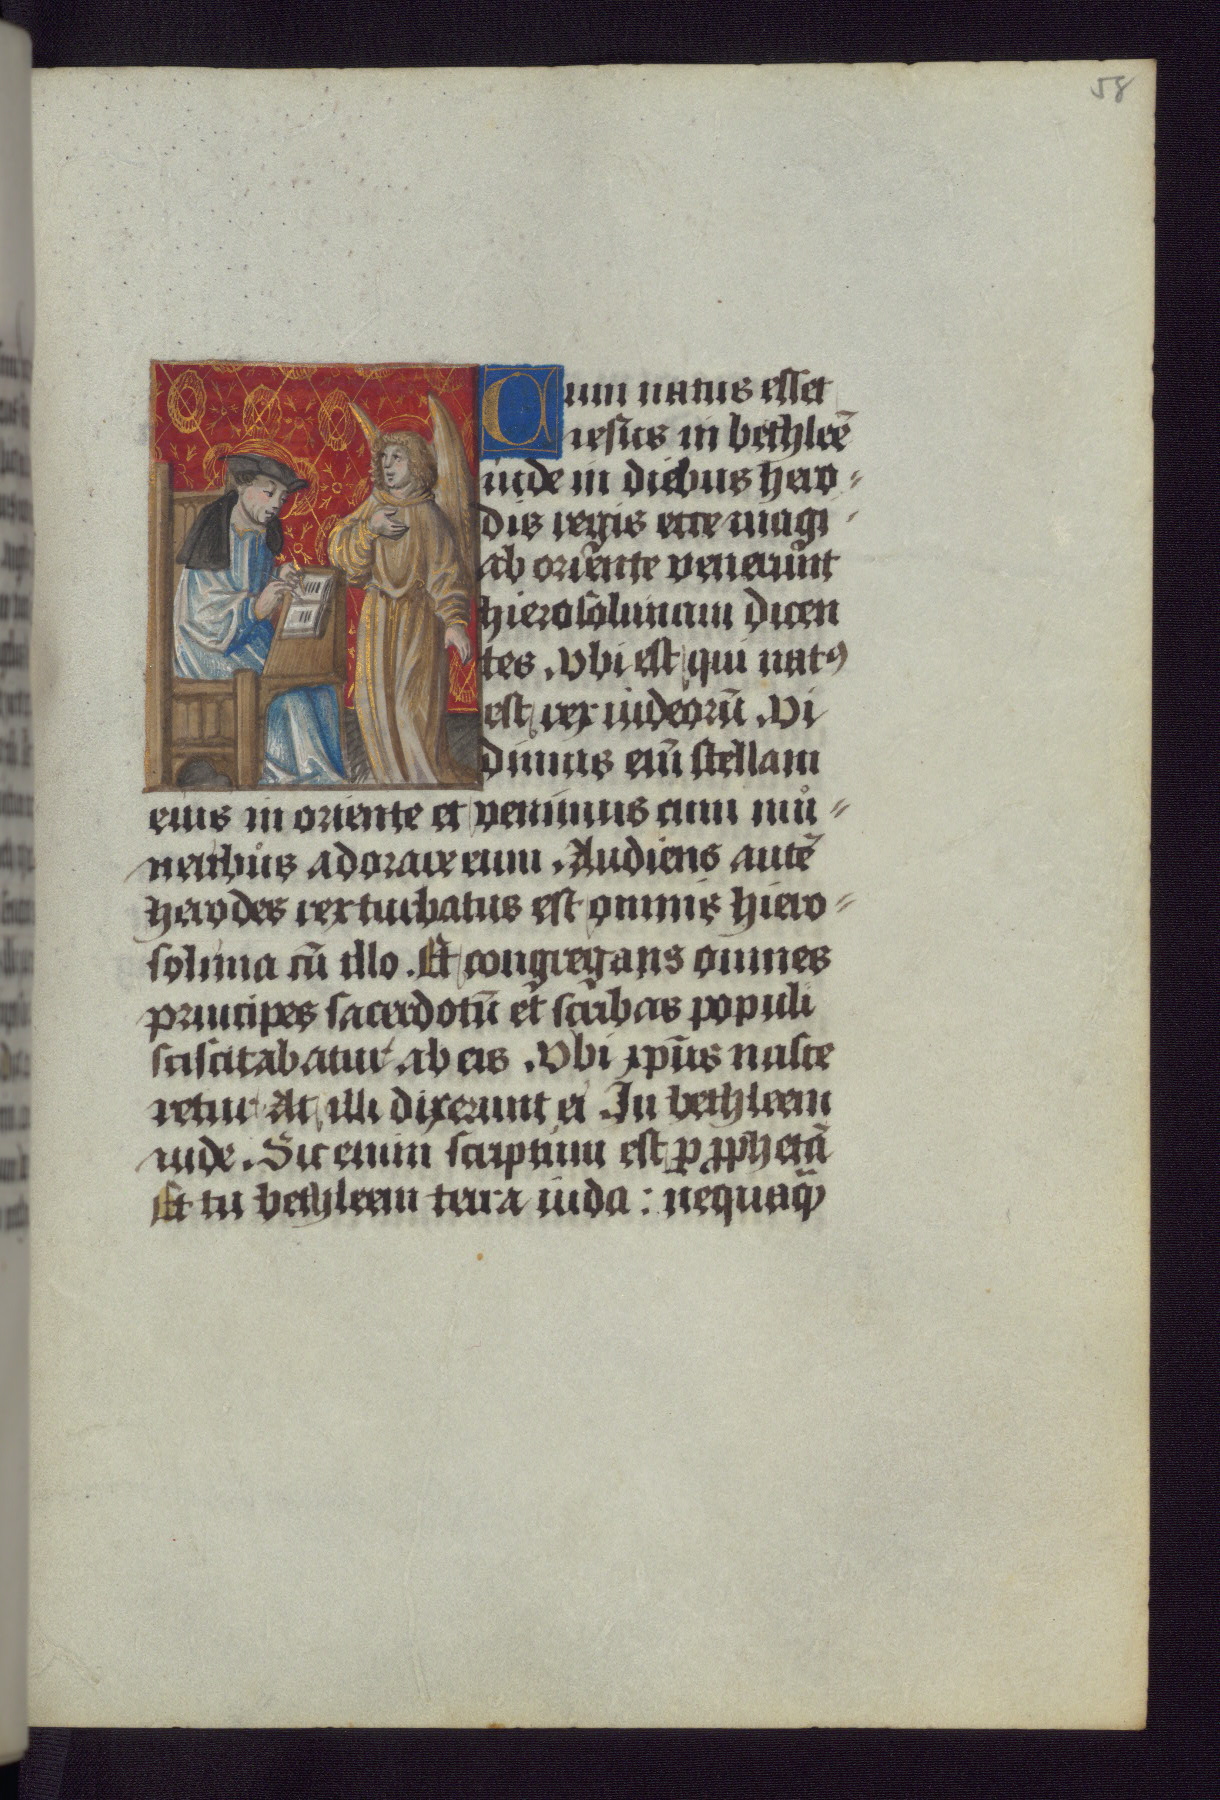 58
Cum natus esset
iesus in bethleē
iude in diebus hero-
dis regis ecce magi
ab oriente venerunt
hierosolimam dicen
tes. Vbi est qui natꝰ
est rex iudeorū. Vi
dimus eiu̅ stellam
eius in oriente et venimus cum mu-
neribus adorare eum. Audiens autē
herodes rex turbatus est omnis hiero-
solima cū illo. Et congregans omnes
principes sacerdotū et scribas populi
sciscitabatur ab eis. Vbi xp̄us nasce
retur At illi dixerunt ei In bethleem
iude. Sic enim scriptum est p̱ ꝓphetā
Et tu bethleem terra iuda: nequaq̄